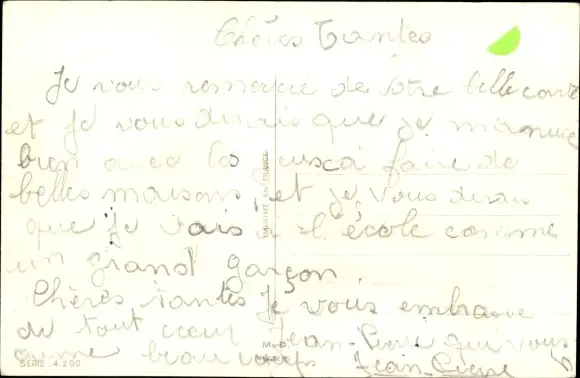 Chères Tantes
Je vous remercie de votre belle carte
et Je vous dirais que je m'amuse
bien avec les jusca faire de
belles maisons et je vous dirais
que je vais a l'école comme
un grand garçon
Chères tantes Je vous embrasse
de tout coeur Jean-Pierre qui vous
aime beaucoups Jean-Pierre
IMPRIMÉ EN FRANCE
M.D.
PARIS
SERIE 4.290